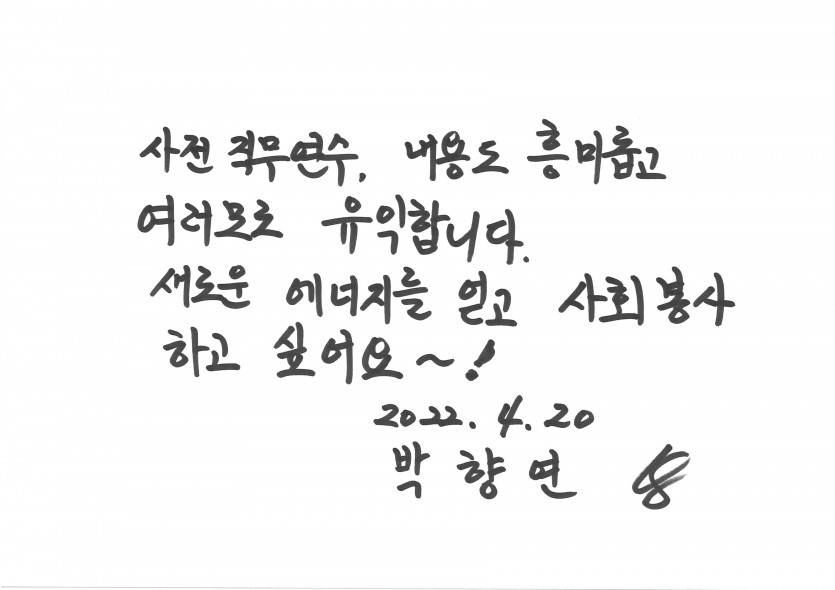 사전 직무연수, 내용도 흥미롭고
여러모로 유익합니다.
새로운 에너지를 얻고 사회봉사
하고 싶어요~!
2022. 4. 20
박향연